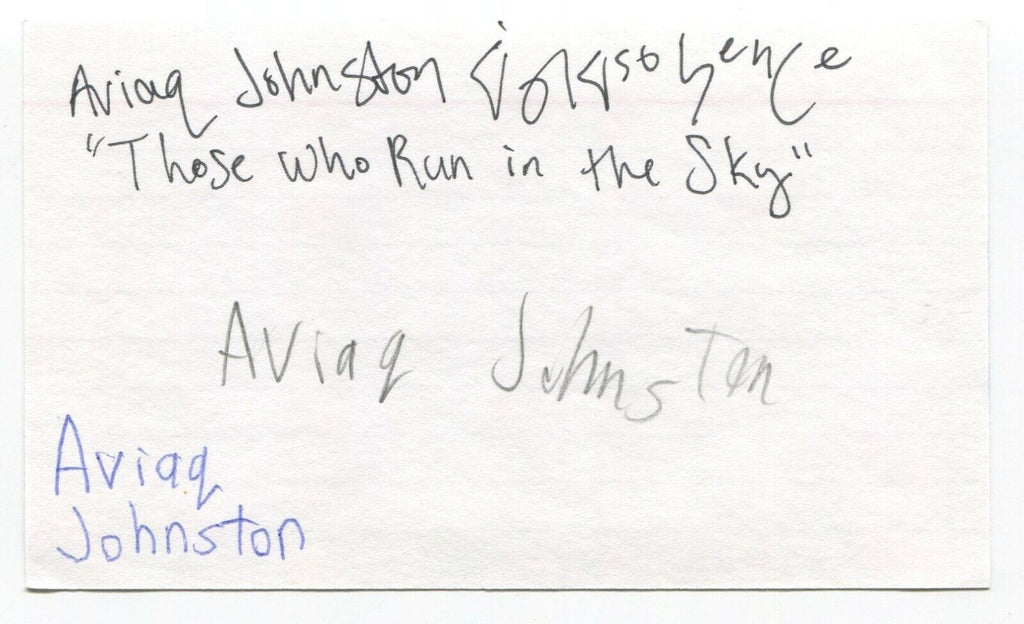 Aviaq Johnston
"Those Who Run in the Sky"
Aviaq Johnston
Aviaq
Johnston